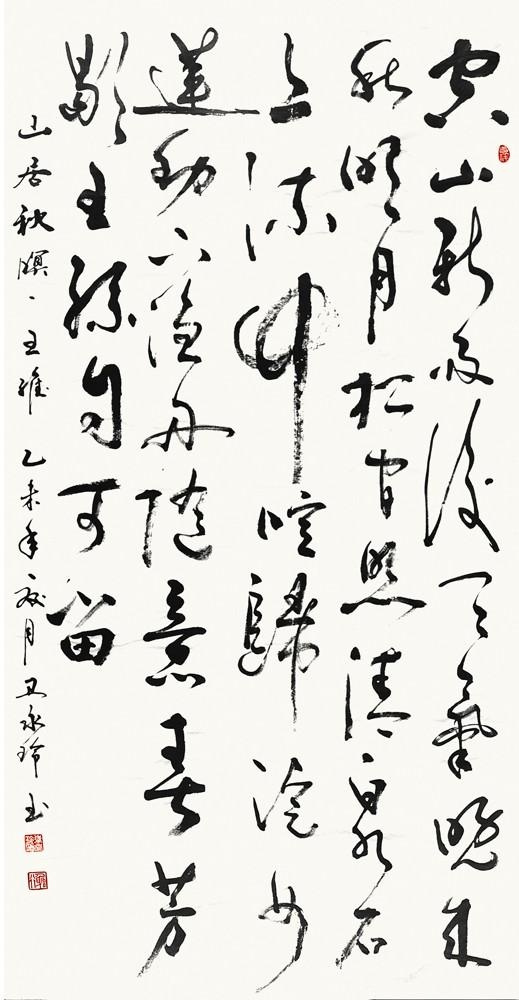 空山新雨後天氣晚来
秋明月松间照清泉石
上流竹喧歸浣女
蓮動下渔舟随意春芳
歇王孫自可留
山居秋暝、王維 乙未年夏月 永玲书